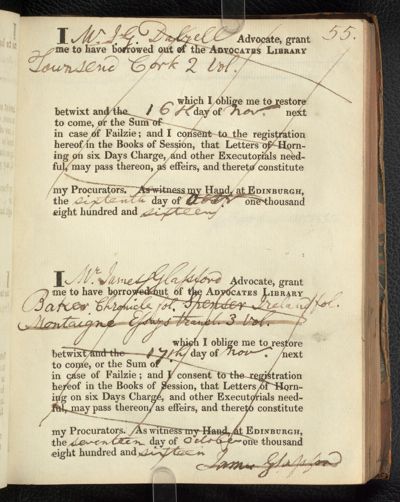 55.
I Mr J. G. Dalyell Advocate, grant
me to have borrowed out of the ADVOCATES LIBRARY
Townsend Cork 2 Vol.
which I oblige me to restore
betwixt and the 16th day of Nov. next
to come, or the Sum of
in case of Failzie; and I consent to the registration
hereof in the Books of Session, that Letters of Horn-
ing on six Days Charge, and other Executorials need-
ful, may pass thereon, as effeirs, and thereto constitute
my Procurators. As witness my Hand, at EDINBURGH,
the sixteenth day of one thousand
eight hundred and sixteen
I Mr. James Glassford Advocate, grant
me to have borrowed out of the ADVOCATES LIBRARY
Baker Chronicle fol. Spenser Ireland fol.
Montaigne Essays transl. 3 Vol.
which I oblige me to restore
betwixt and the 17th day of Nov. next
to come, or the Sum of
in case of Failzie; and I consent to the registration
hereof in the Books of Session, that Letters of Horn-
ing on six Days Charge, and other Executorials need-
ful, may pass thereon, as effeirs, and thereto constitute
my Procurators. As witness my Hand, at EDINBURGH,
the seventeen day of October one thousand
eight hundred and sixteen
James Glassford